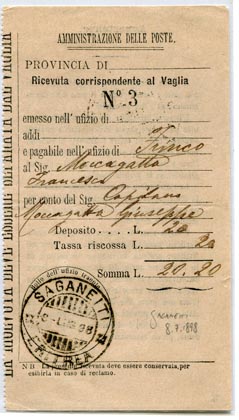 AMMINISTRAZIONE DELLE POSTE.
PROVINCIA DI
Ricevuta corrispondente al Vaglia
Nº 3
emesso nell' ufizio di
addì
e pagabile nell'ufizio di Trinco
al Sig. Moccagatta
Francesco
per conto del Sig. Capitano
Moccagatta Giuseppe
Deposito . . . . L. 20
Tassa riscossa L. 20
Somma L. 20.20
Bollo dell' ufizio
SAGANEITI
ERITREA
SAGANEITI
8.7.1898
NB La presente ricevuta deve essere conservata, per
esibirla in caso di reclamo.
LA RICEVUTA DEVE ESSERE DEL VAGLIA